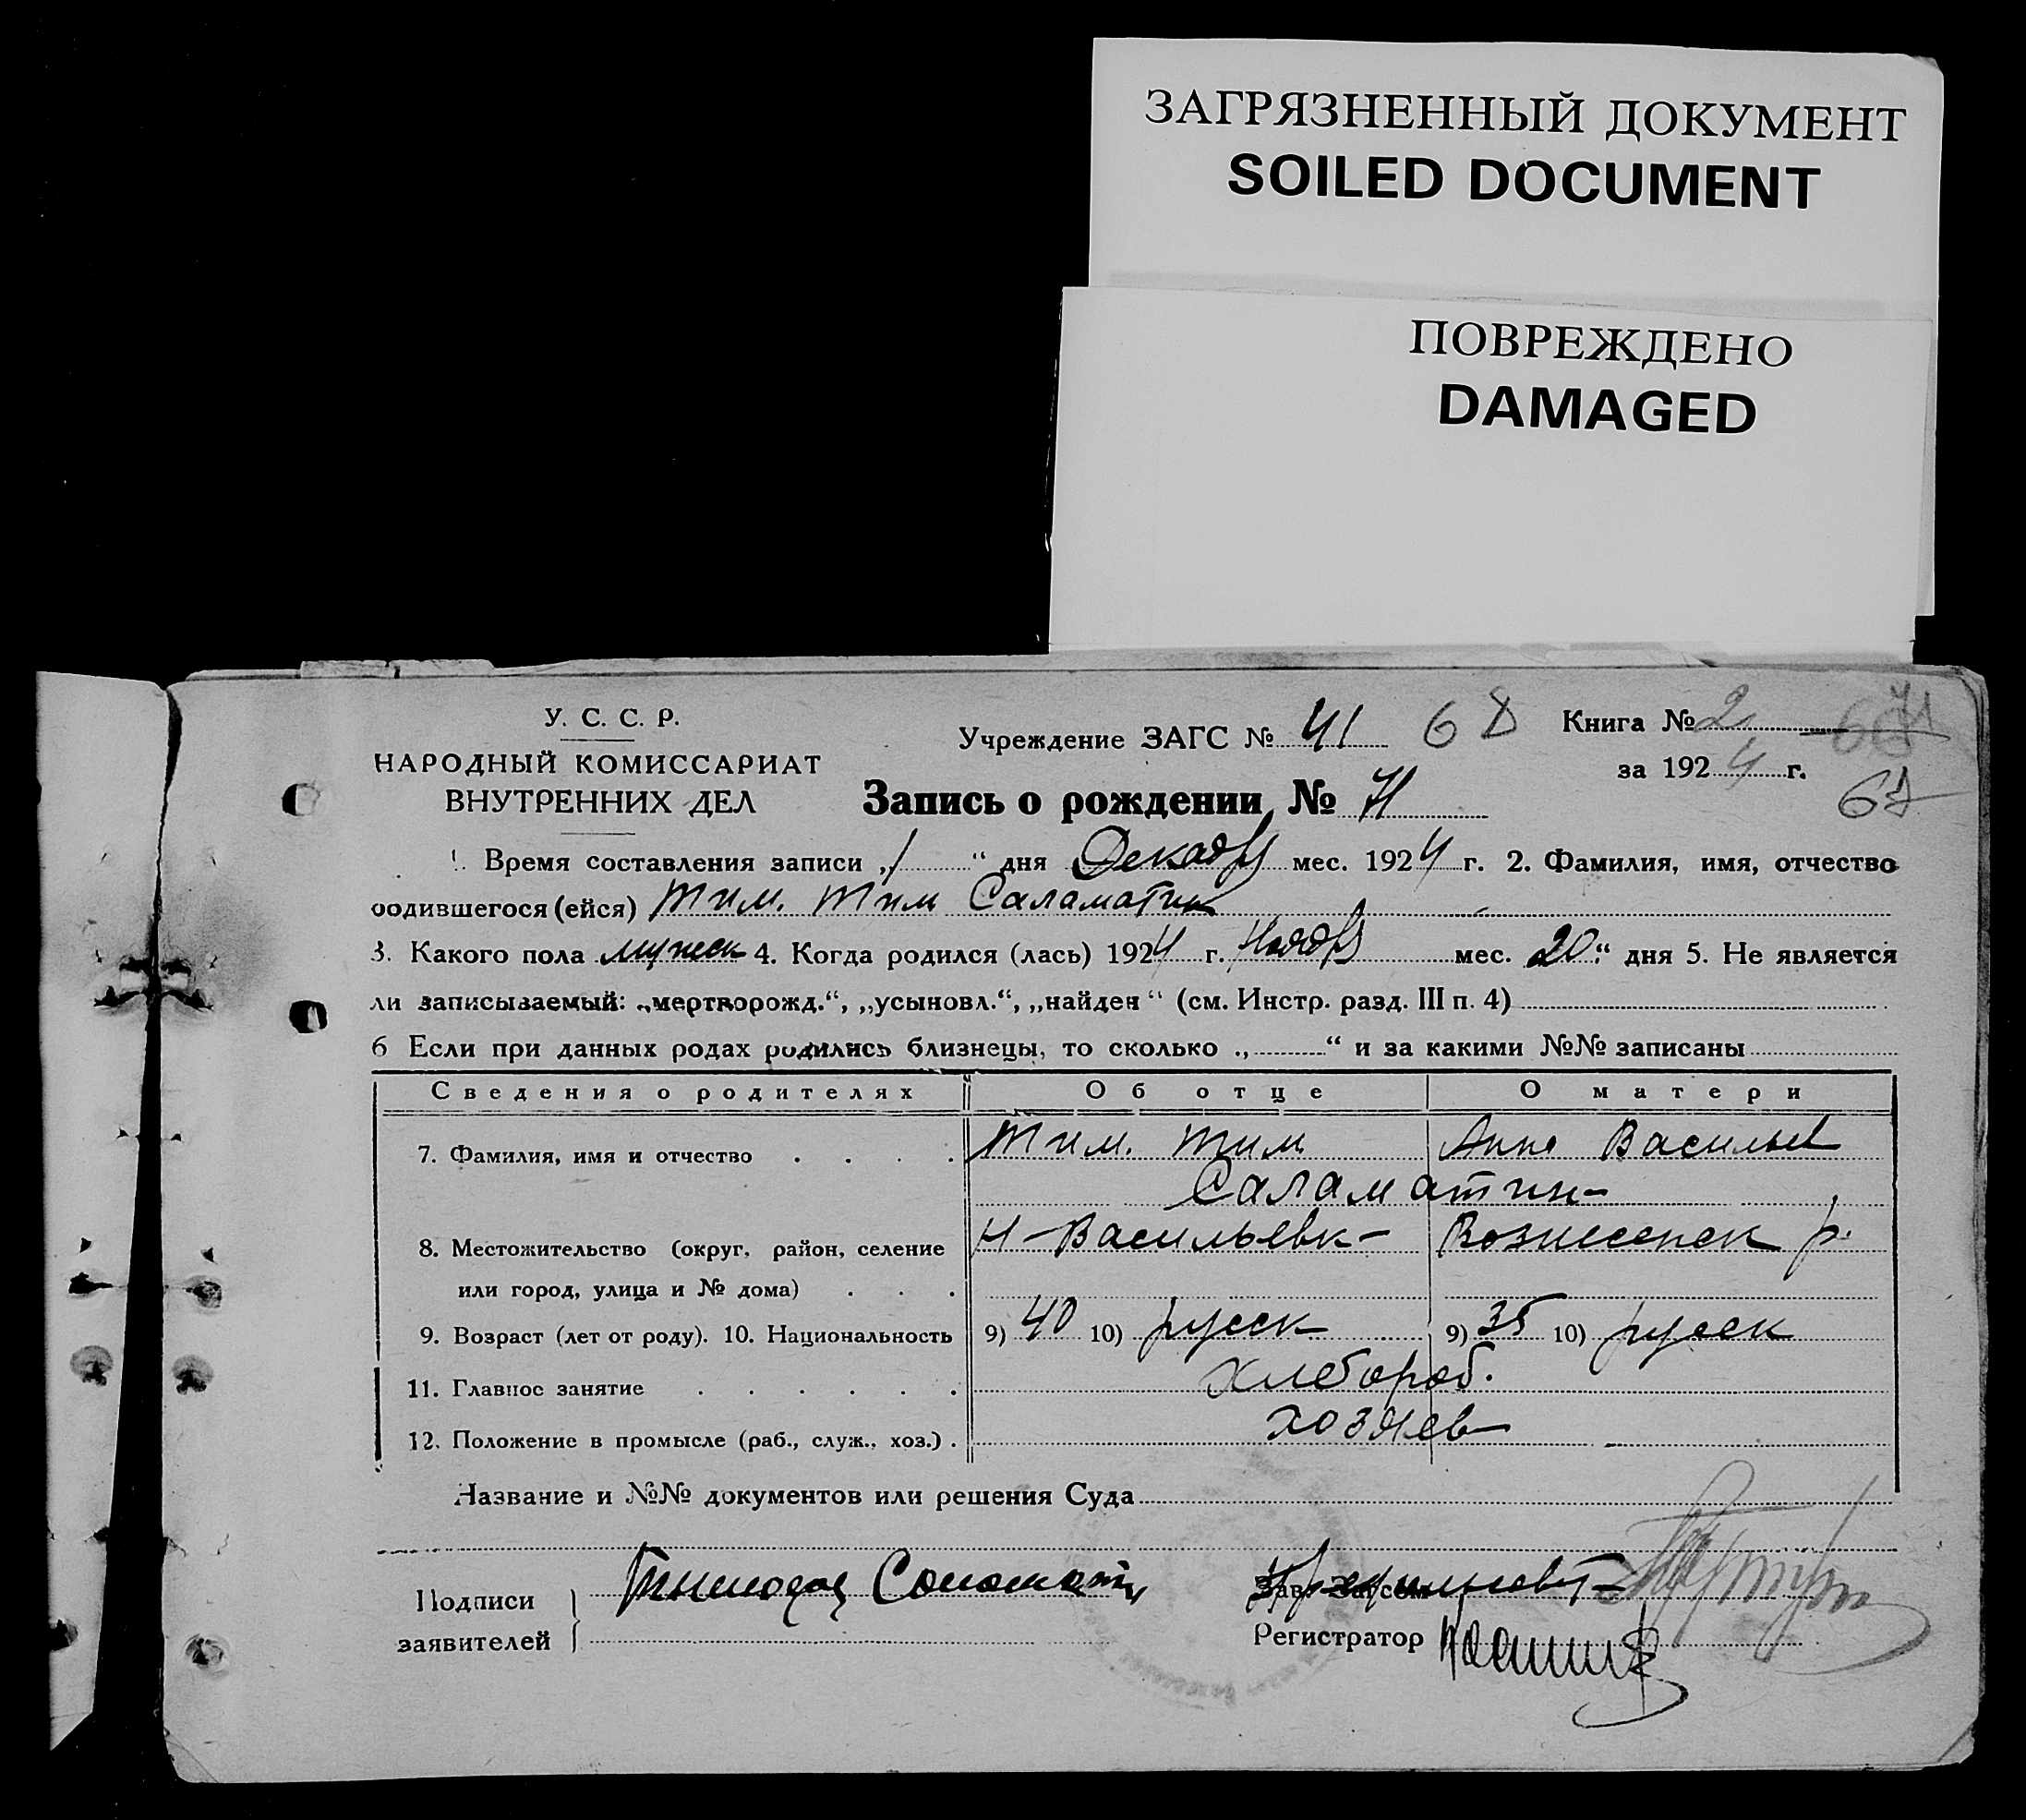 ЗАГРЯЗНЕННЫЙ ДОКУМЕНТ
SOILED DOCUMENT
ПОВРЕЖДЕНО
DAMAGED
У. С. С. Р.
НАРОДНЫЙ КОМИССАРИАТ
ВНУТРЕННИХ ДЕЛ
Учреждение ЗАГС № 41 68
Книга № 2
за 1924 г.
67
Запись о рождении № 71
1. Время составления записи „1“ дня Декабр мес. 1924 г. 2. Фамилия, имя, отчество
родившегося (ейся) Тим. Тим Саламатин
3. Какого пола мужск 4. Когда родился (лась) 1924 г. Ноябр мес. 20“ дня 5. Не является
ли записываемый: „мертворожд.“, „усыновл.“, „найден“ (см. Инстр. разд. III п. 4)
6 Если при данных родах родились близнецы, то сколько „“ и за какими №№ записаны
Сведения о родителях Об отце О матери
7. Фамилия, имя и отчество Тим. Тим. Анна Васильев
Саламатин-
8. Местожительство (округ, район, селение Н-Васильевк- Вознесенск р.
или город, улица и № дома)
9. Возраст (лет от роду). 10. Национальность 9) 40 10) русск 9) 35 10) русск
11. Главное занятие хлебороб.
12. Положение в промысле (раб., служ., хоз.) хозяев
Название и №№ документов или решения Суда
Подписи
заявителей
Зав. Загсом
Регистратор